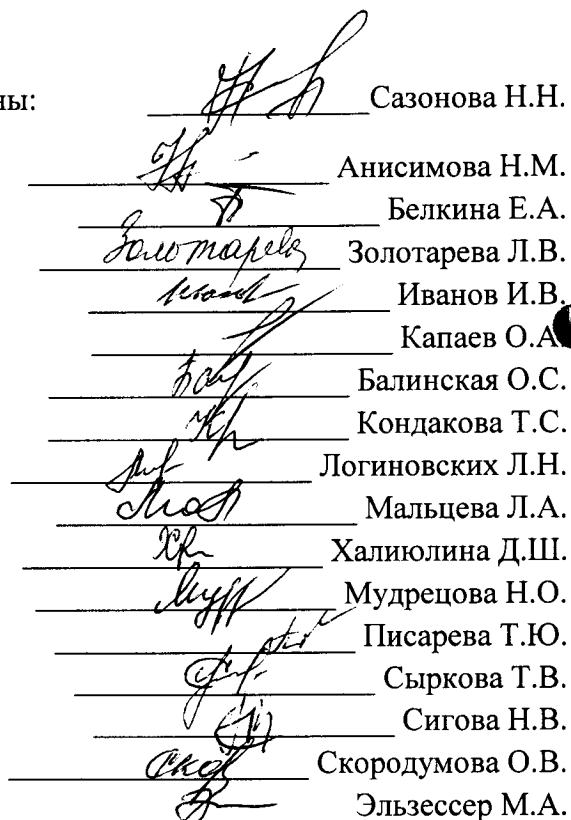 ны: Сазонова Н.Н.
Анисимова Н.М.
Белкина Е.А.
Золотарева Золотарева Л.В.
Иванов И.В.
Капаев О.А
Балинская О.С.
Кондакова Т.С.
Логиновских Л.Н.
Мальцева Л.А.
Халиюлина Д.Ш.
Мудрецова Н.О.
Писарева Т.Ю.
Сыркова Т.В.
Сигова Н.В.
Скородумова О.В.
Эльзессер М.А.